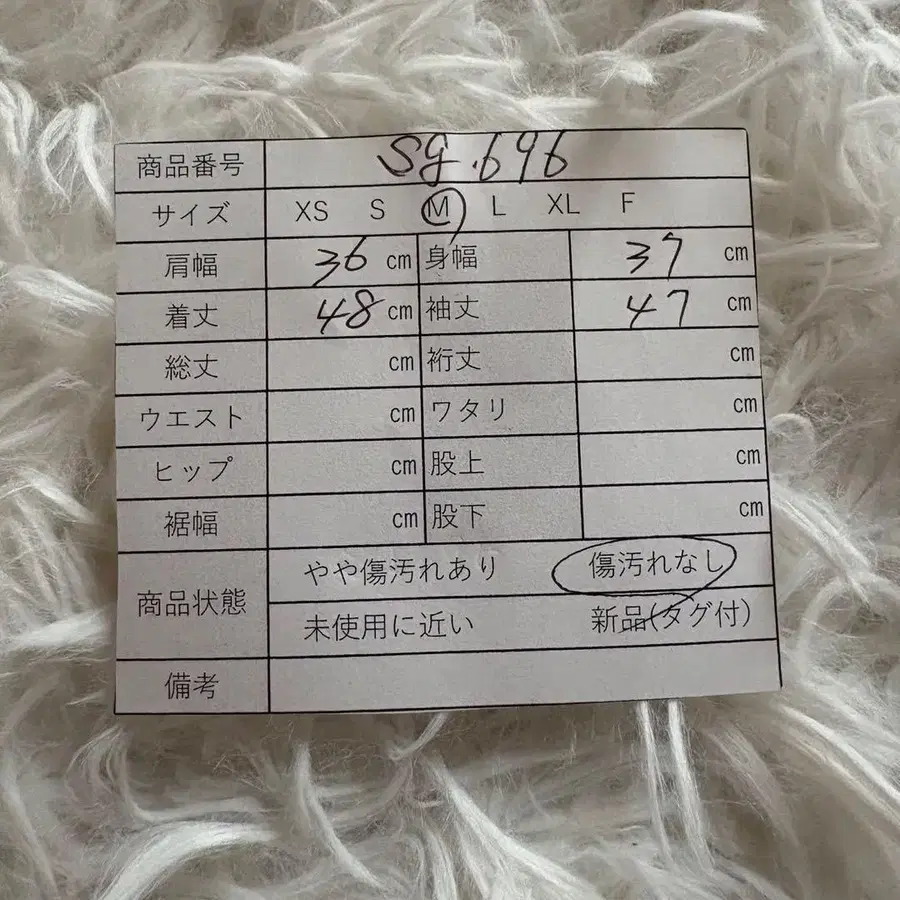 商品番号 sg.696
サイズ XS S M L XL F
肩幅 36 cm 身幅 37 cm
着丈 48 cm 袖丈 47 cm
総丈 cm 裄丈 cm
ウエスト cm ワタリ cm
ヒップ cm 股上 cm
裾幅 cm 股下 cm
商品状態 やや傷汚れあり 傷汚れなし
未使用に近い 新品(タグ付)
備考